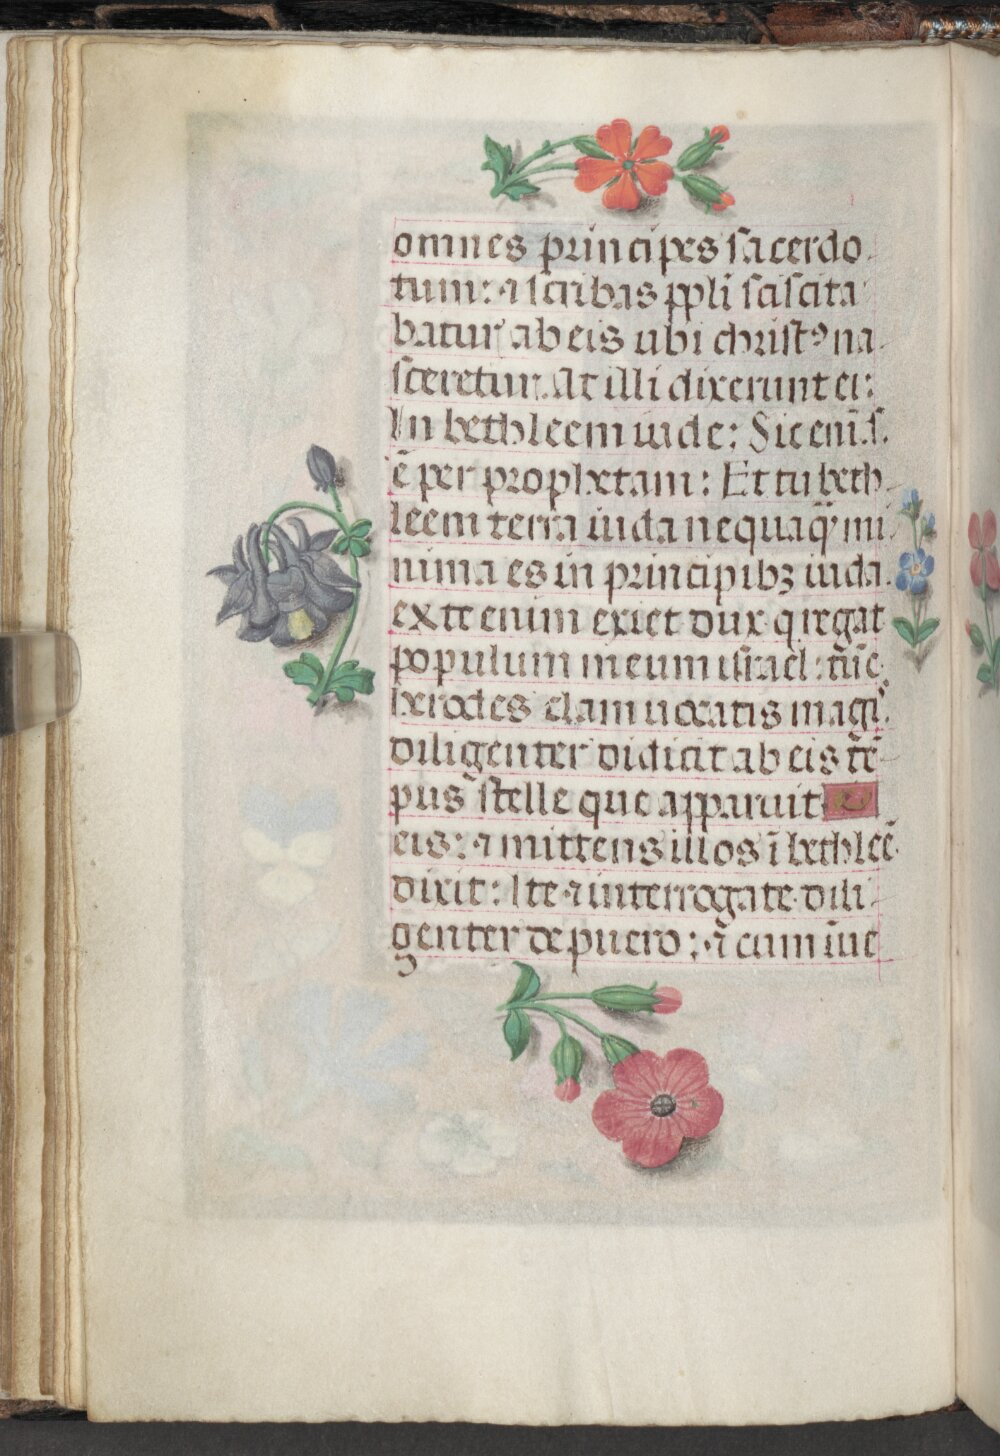 omnes principes sacerdo
tum: ⁊ scribas ppl̄i sciscita
batur ab eis ubi christꝰ na
sceretur. At illi dixerunt ei:
In bethleem iude: Sic eni̅. s̅.
e̅ per prophetam: Et tu beth
leem terra iuda nequaq̅ mi
nima es in principibꝫ iuda.
ex te enim exiet dux q regat
populum meum israel: tu̅c
herodes clam uocatis magi̅.
diligenter didicit ab eis te̅
pus stelle que apparuit
eis: ⁊ mittens illos i̅ bethlee̅
dixit: Ite ⁊ interrogate dili
genter de puero: ⁊ cum i̅ue